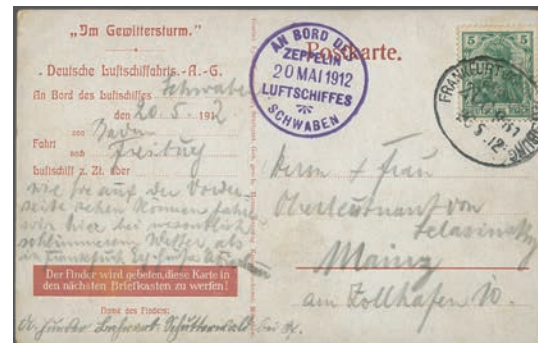 „Im Gewittersturm.“
Deutsche Luftschiffahrts-A.-G.
An Bord des Luftschiffes Schwaben
den 20. 5. 1912
Fahrt
von Baden
nach Freiburg
Luftschiff z. Zt. über
wie Sie auf der Vorder-
seite sehen können fahren
wir hier bei
schlimmerem Wetter, als
in Frankfurt
Der Finder wird gebeten, diese Karte in
den nächsten Briefkasten zu werfen!
Name des Finders:
Schutterwald bei
AN BORD DES
ZEPPELIN
20 MAI 1912
LUFTSCHIFFES
SCHWABEN
Postkarte.
5 5
FRANKFURT
5. 12
Herrn + Frau
Oberleutnant von
Mainz
am Zollhafen 10.